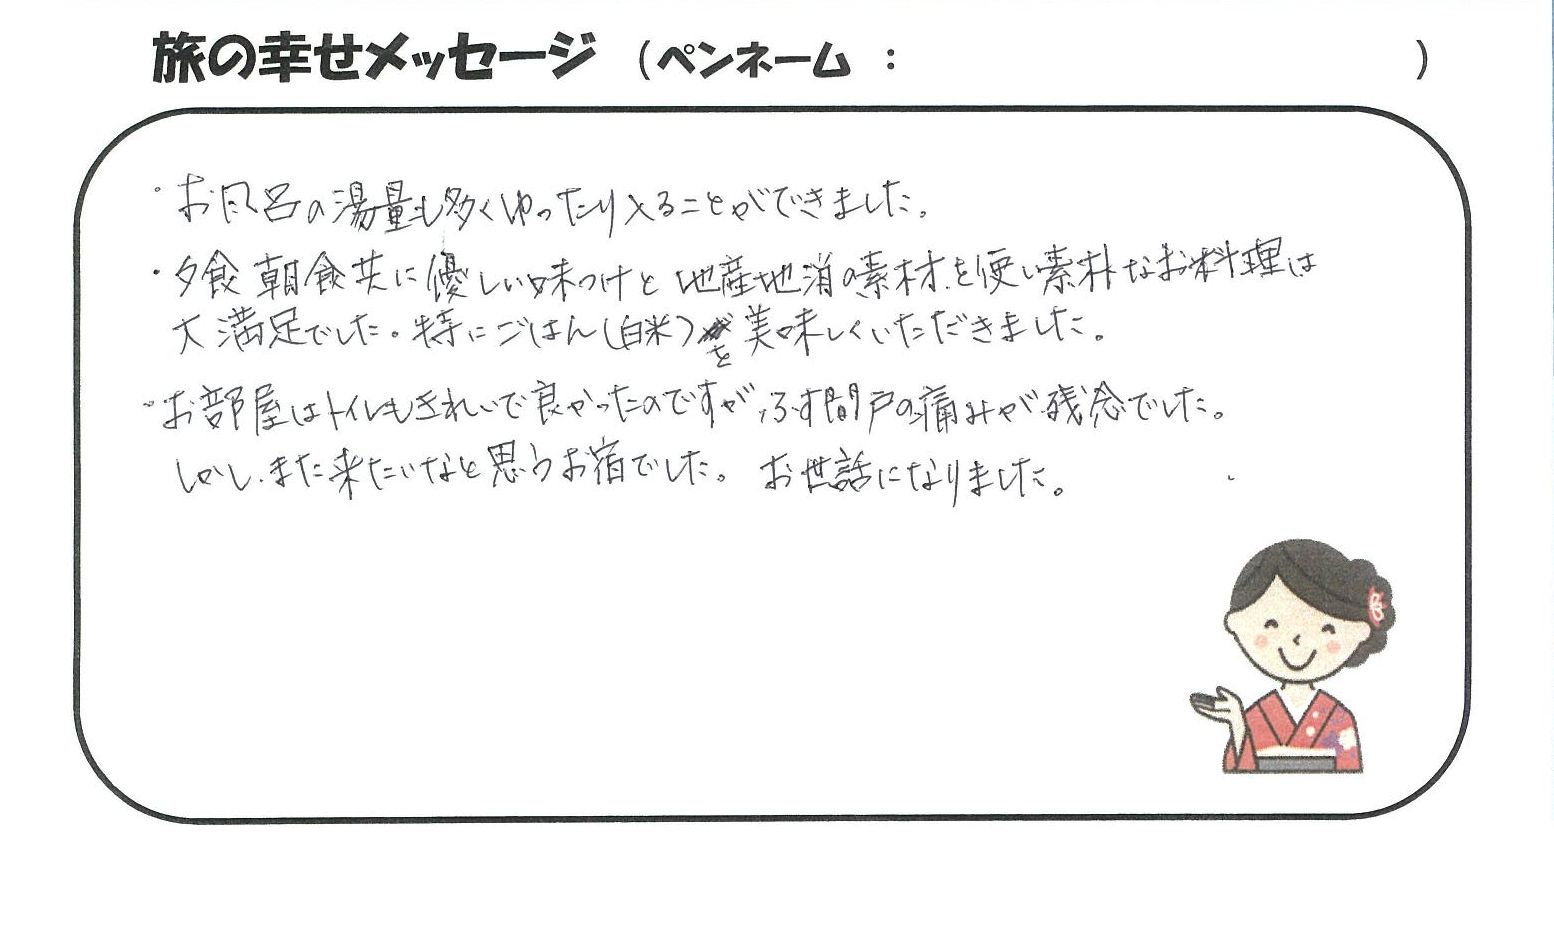 旅の幸せメッセージ (ペンネーム : )
・お風呂の湯量も多くゆったり入ることができました。
・夕食朝食共に優しい味つけと地産地消の素材を使い素朴なお料理は
大満足でした。特にごはん(白米)を美味しくいただきました。
・お部屋はトイレもきれいで良かったのですが、ふす間戸の痛みが残念でした。
しかし、また来たいなと思うお宿でした。お世話になりました。